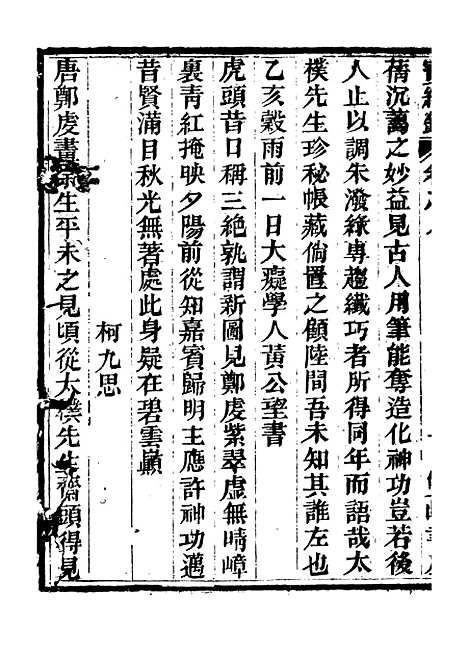 蒨沉藹之妙益見古人用筆能奪造化神功豈若後
人止以調朱潑綠專趨纖巧者所得同年而語哉太
樸先生珍秘帳藏倘置之顧陸間吾未知其誰左也
乙亥穀雨前一日大癡學人黃公望書
虎頭昔日稱三絶孰謂新圖見鄭虔紫翠虛無晴嶂
裏青紅掩映夕陽前從知嘉賓歸明主應許神功邁
昔賢滿目秋光無著處此身疑在碧雲巔
柯九思
唐鄭虔畫 生平未之見頃從太樸先生齋頭得見